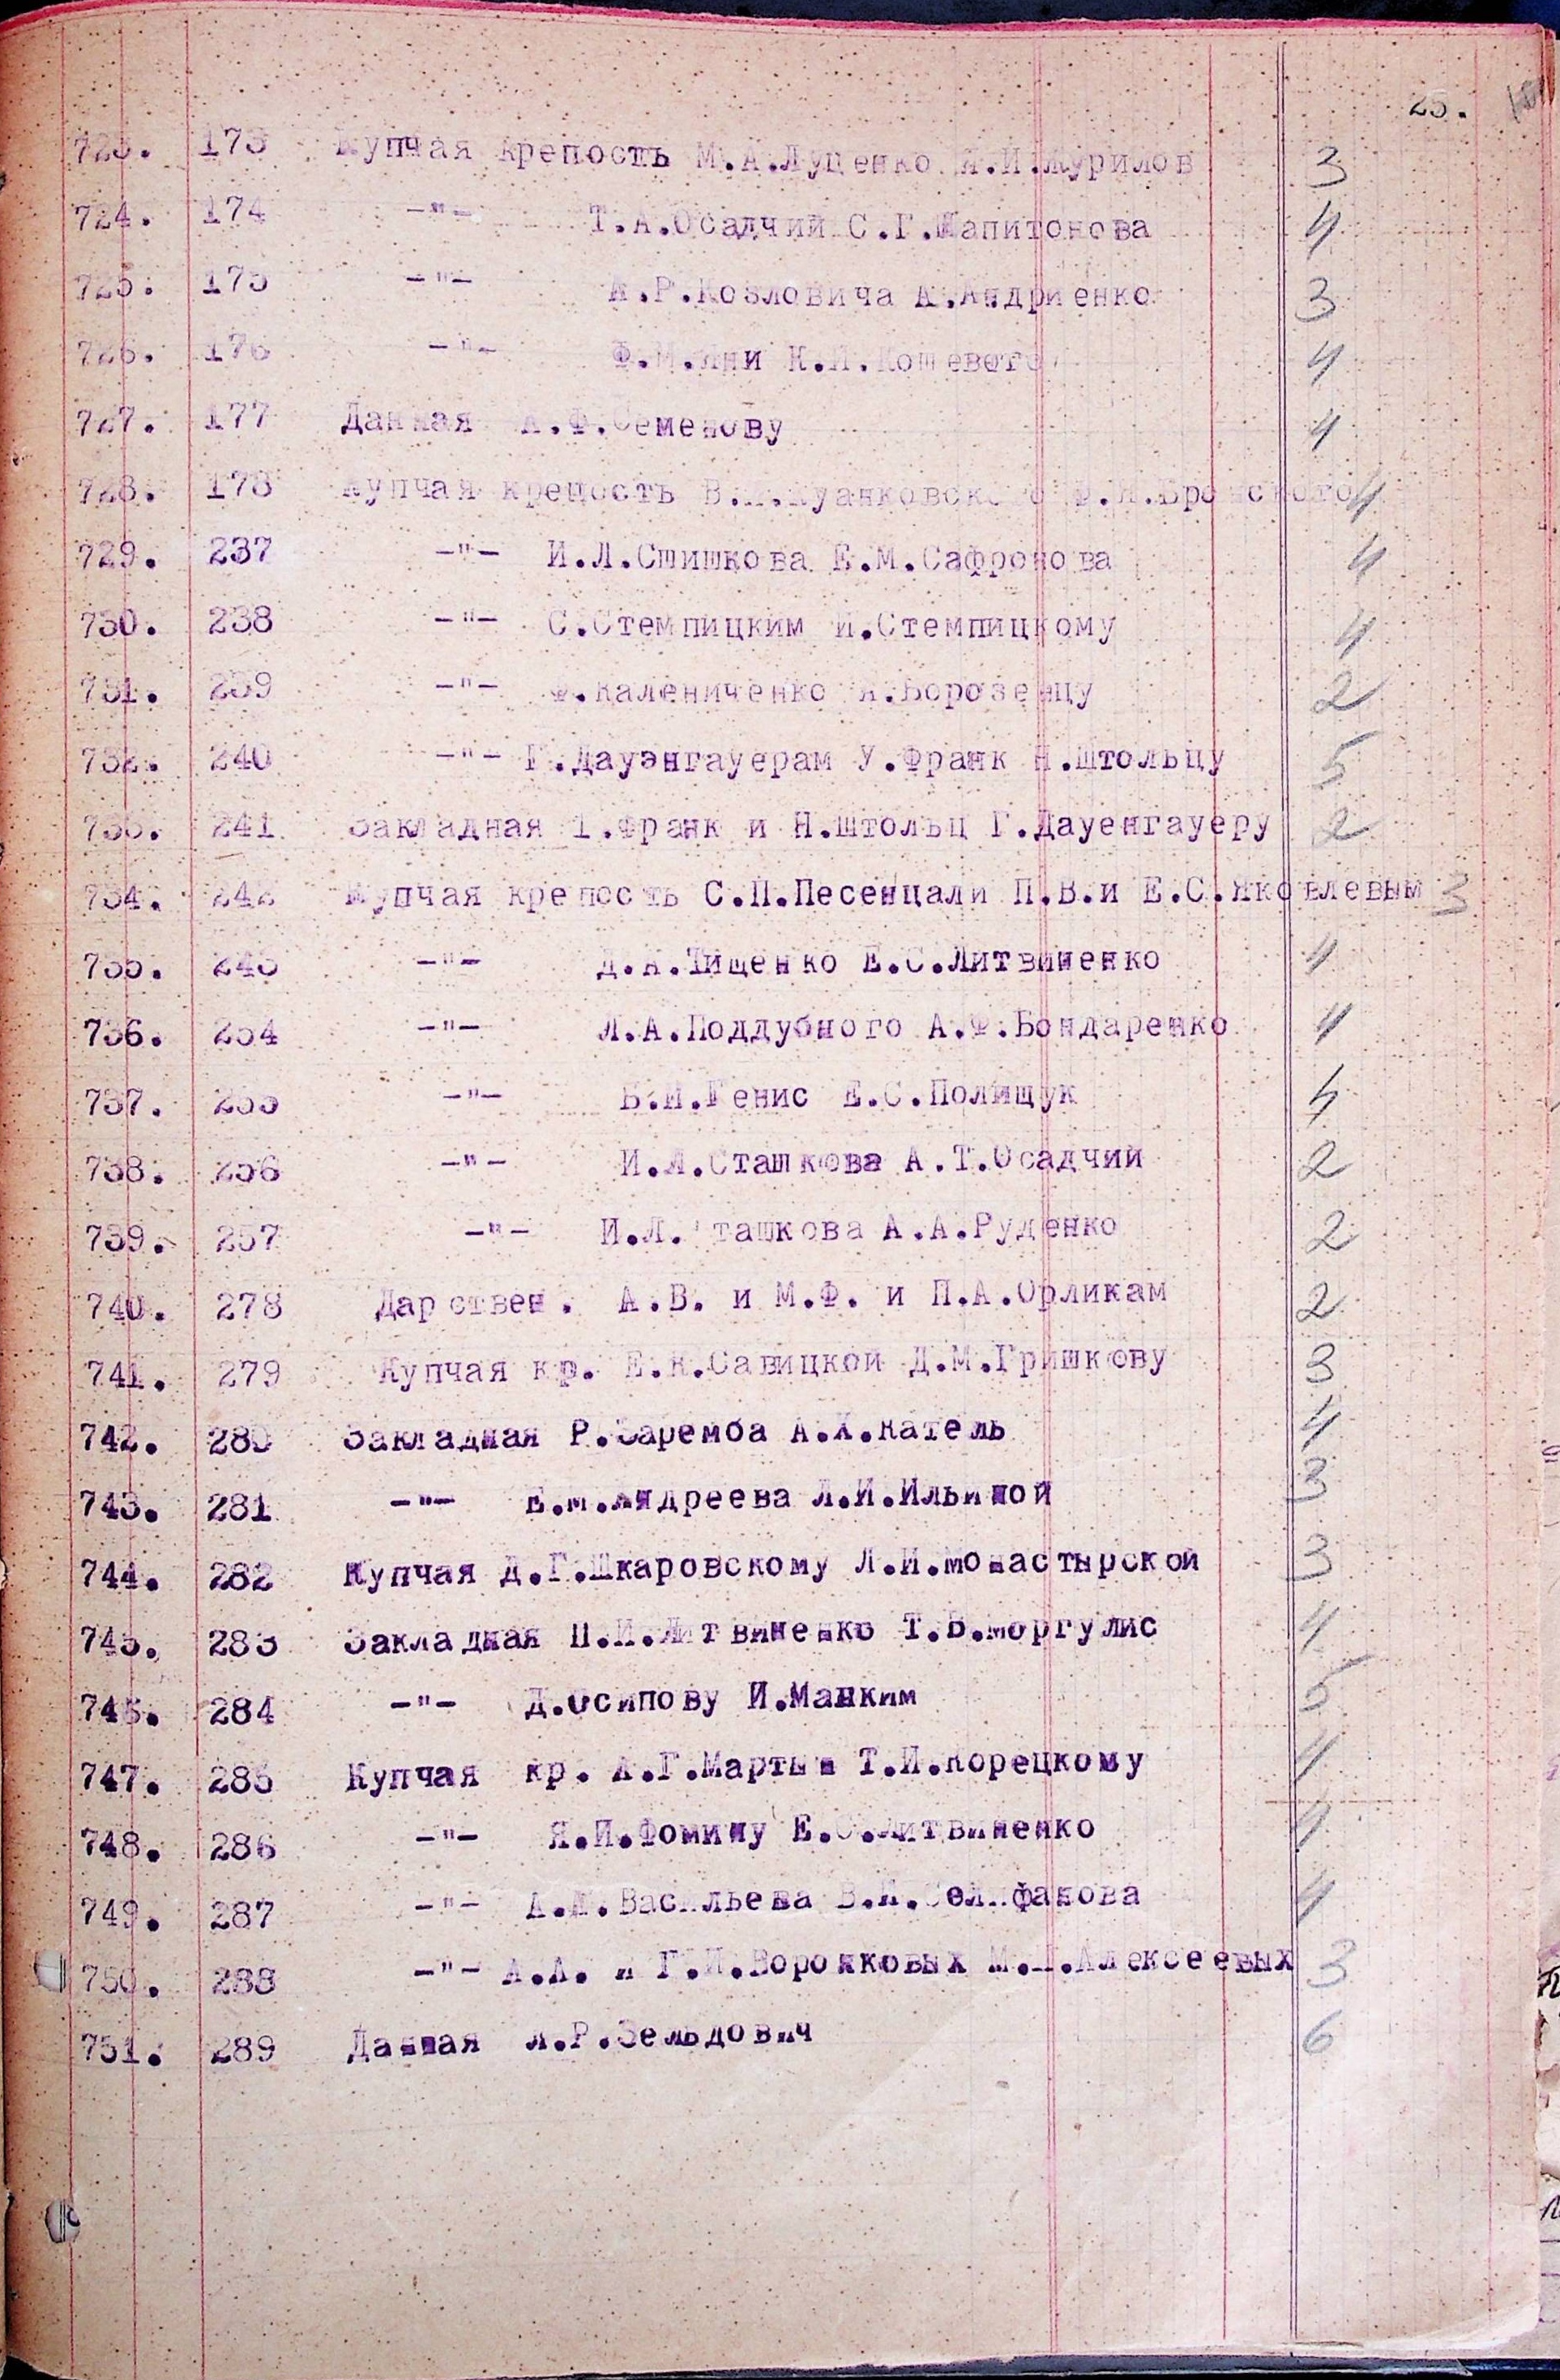 25.
723. 173 Купчая крепость М.А.Луценко Я.И.Журилов 3
724. 174 -"- Т.А.Осадчий С.Г.Шапитонова 4
725. 175 -"- А.Р.Козловича А.Андриенко 3
726. 176 -"- Ф.М.Яни К.И.Кошевого 4
727. 177 Данная А.Ф.Семенову 4
728. 178 Купчая крепость 4
729. 237 -"- И.Л.Сшишкова Е.М.Сафронова 4
730. 238 -"- С.Стемпицким И.Стемпицкому 4
731. 239 -"- Ф.Калениченко Я.Борозенцу 2
732. 240 -"- Г.Дауэнгауерам У.Франк Н.Штольцу 5
733. 241 Закладная Франк и Н.Штольц Г.Дауенгауеру 2
734. 242 Купчая крепость С.П.Песенцали П.В.и Е.С.Яковлевым 3
735. 243 -"- Д.А.Тищенко Е.С.Литвиненко 4
736. 254 -"- Л.А.Поддубного А.Ф.Бондаренко 4
737. 255 -"- Б.И.Генис Е.С.Полищук 4
738. 256 -"- И.Л.Сташкова А.Т.Осадчий 2
739. 257 -"- И.Л. ташкова А.А.Руденко 2
740. 278 Дарствен. А.В. и М.Ф. и П.А.Орликам 2
741. 279 Купчая кр. Е.К.Савицкой Д.М.Гришкову 3
742. 280 Закладная Р.Заремба А.Х.Катель 4
743. 281 -"- Е.М.Андреева Л.И.Ильиной 3
744. 282 Купчая Д.Г.Шкаровскому Л.И.Монастырской 3
745. 283 Закладная П.И.Литвиненко Т.Б.Моргулис 4
746. 284 -"- Д.Осипову И.Манким 5
747. 285 Купчая кр. А.Г.Мартын Т.И.Корецкому 4
748. 286 -"- Я.И.Фомину Е.С.Литвиненко 4
749. 287 -"- А.И.Васильева В.И.Селифанова 4
750. 288 -"- А.А. и Г.И.Воронковых Алексеевых 3
751. 289 Данная Л.Р.Зельдович 6